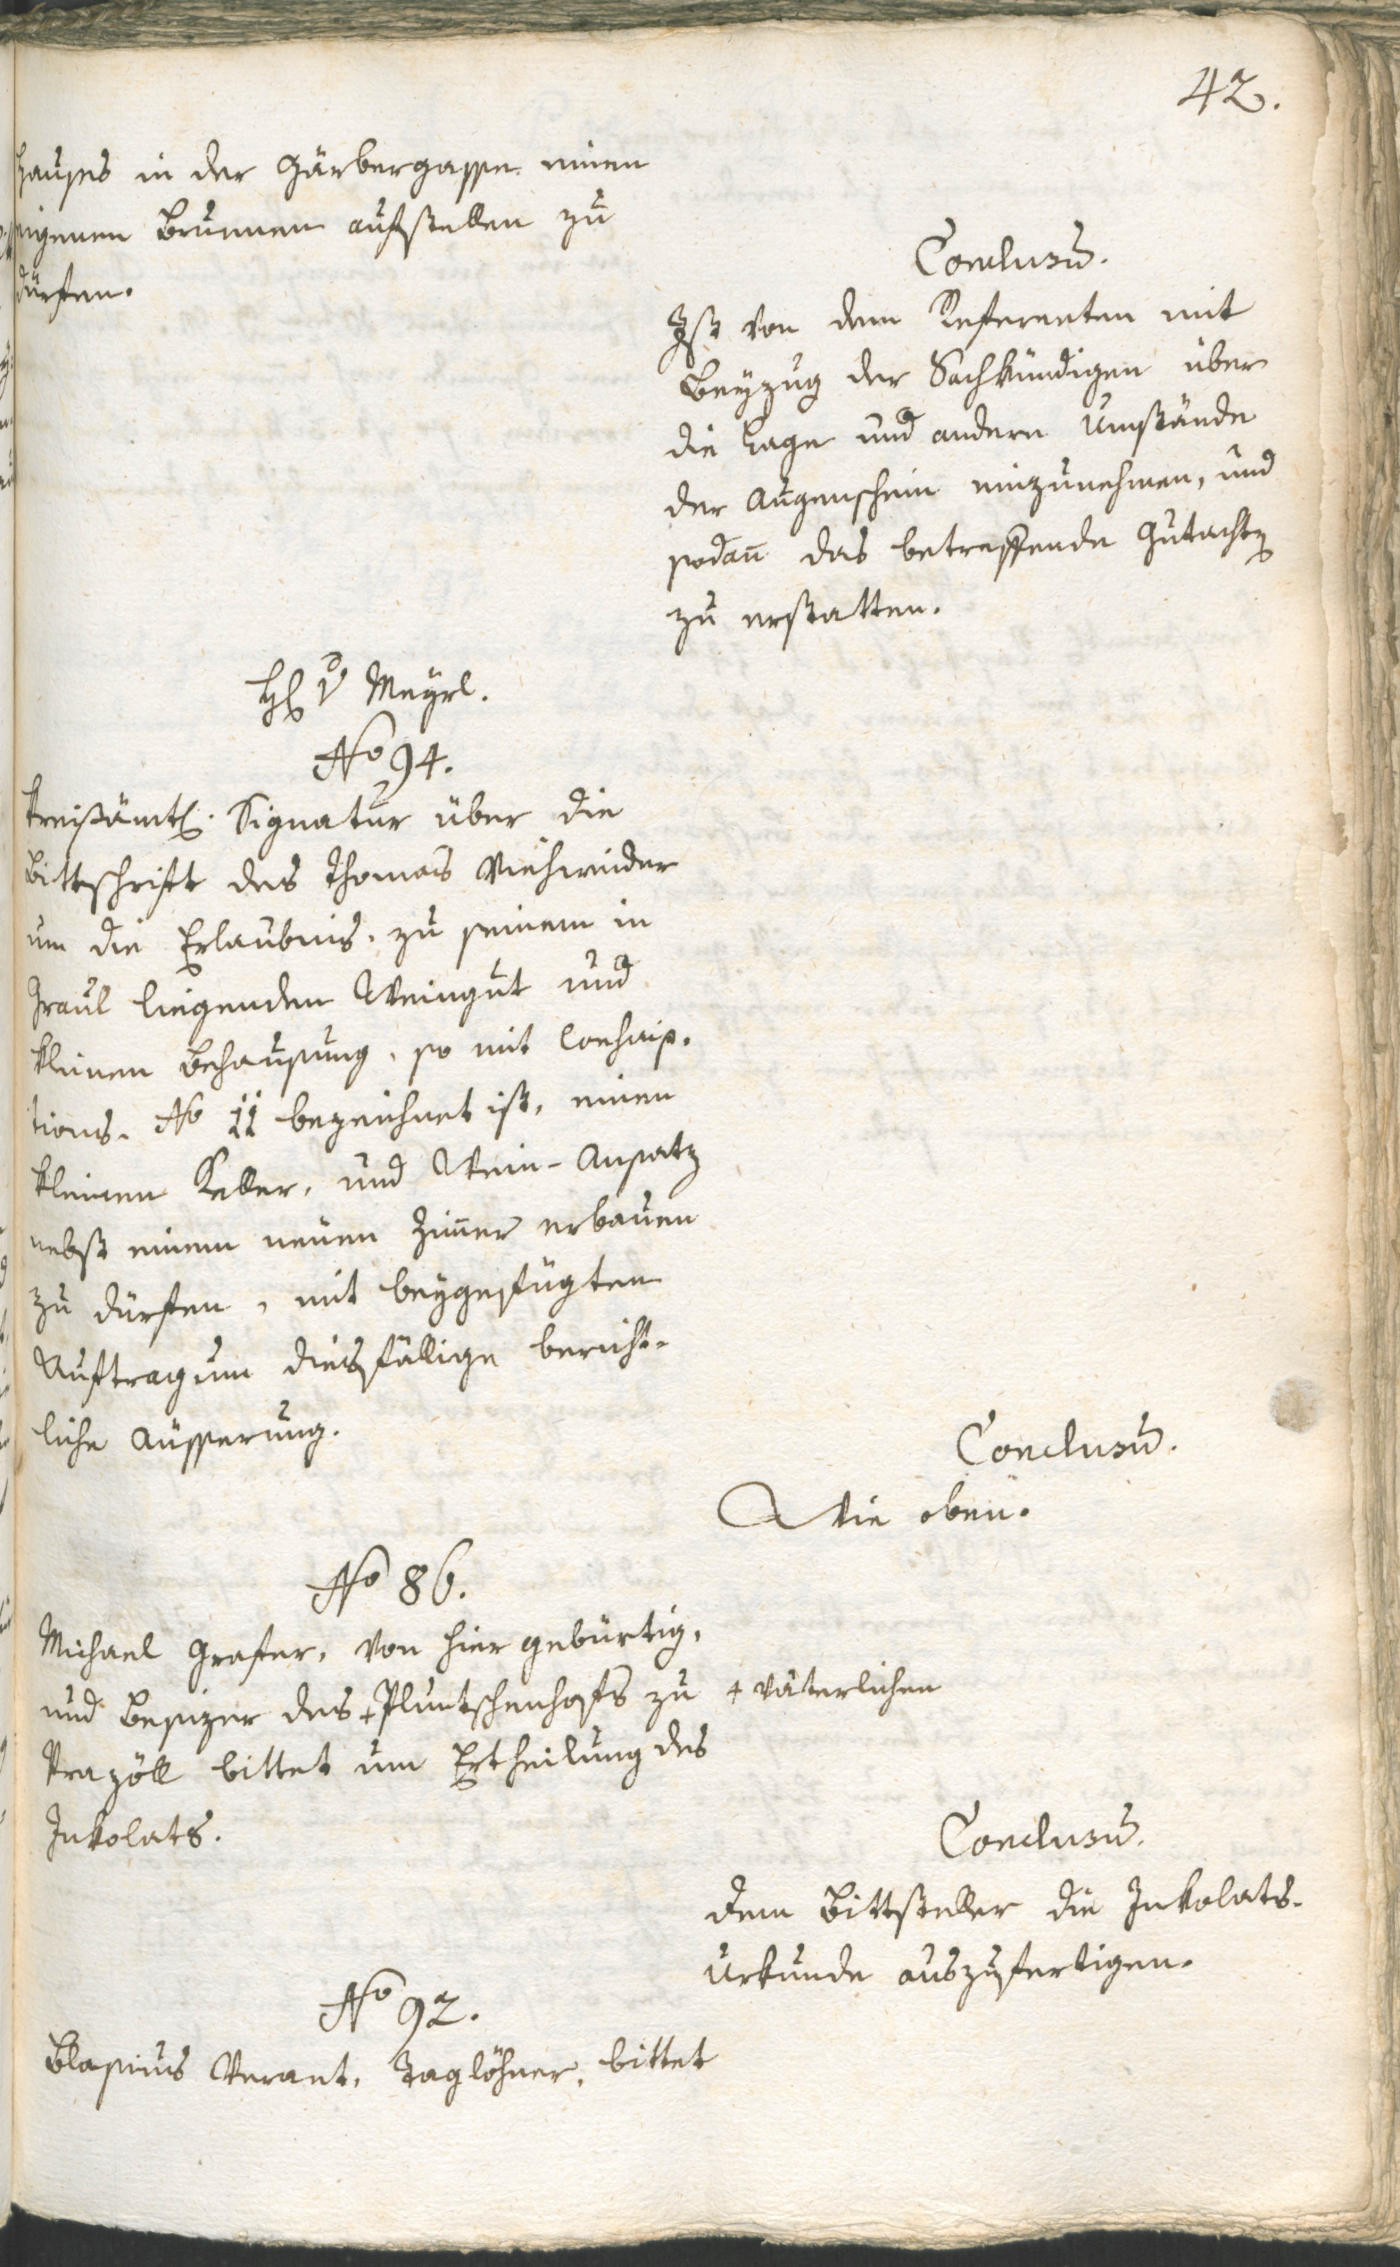 42.
hauses in der Gärbergasse einen
eigenen Brunnen aufstellen zu
dürfen.
Conclusū.
Ist von dem Referenten mit
Beyzug der Sachkündigen über
die Lage und andern Umstände
der Augenschein einzunehmen, und
sodan̄ das betreffende Gutachten
zu erstatten.
H. v Mayrl.
No 94.
Kreisämtl. Signatur über die
Bittschrift des Thomas Viehweider
um die Erlaubnis, zu seinem in
Graul liegenden Weingut und
kleinen Behausung, so mit Conscrip-
tions. No 11 bezeichnet ist, einen
kleinen Keller, und Wein-Ansatz
nebst einem neuen Zim̄er erbauen
zu dürfen, mit beygefügten
Auftrag um diesfällige bericht-
liche Äusserung.
Conclusū.
Wie oben.
No 86.
Michael Grafer, von hier gebürtig,
und Besizer des + Pluntschenhofs zu
+ väterlichen
Prazöll bittet um Ertheilung des
Inkolats.
Conclusū.
dem Bittsteller die Inkolats-
Urkunde auszufertigen.
No 92.
Blasius Verant, Taglöhner, bittet